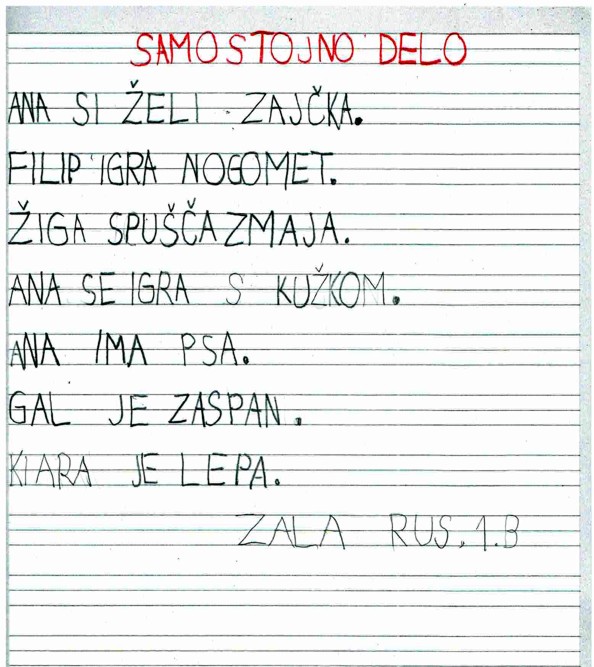 SAMOSTOJNO DELO
ANA SI ŽELI ZAJČKA.
FILIP IGRA NOGOMET.
ŽIGA SPUŠČA ZMAJA.
ANA SE IGRA S KUŽKOM.
ANA IMA PSA.
GAL JE ZASPAN.
KIARA JE LEPA.
ZALA RUS, 1.B